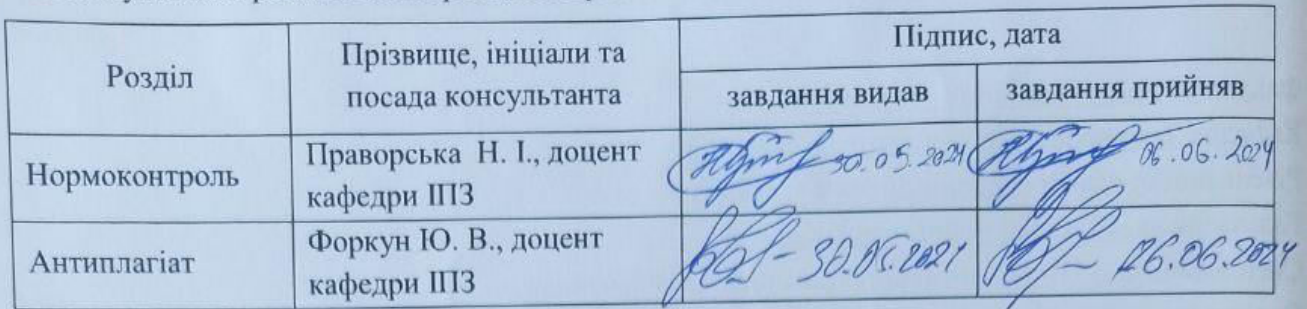 Підпис, дата
Розділ
Прізвище, ініціали та
посада консультанта
завдання видав
завдання прийняв
Нормоконтроль
Праворська Н. І., доцент
кафедри ІПЗ
30.05.2024
06.06.2024
Антиплагіат
Форкун Ю. В., доцент
кафедри ІПЗ
30.05.2021
26.06.2024